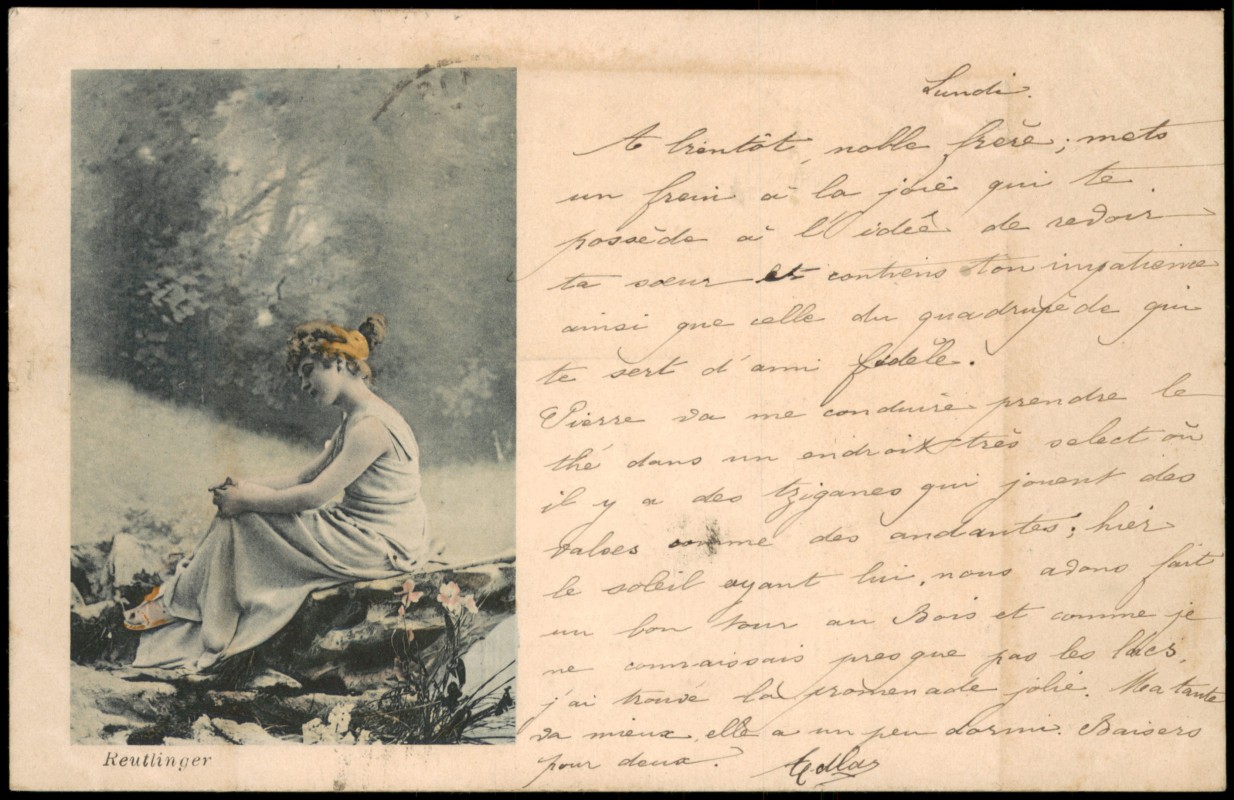 Lundi.
A bientôt, noble frère ; mets
un frein à la joie qui te
possède à l'idée de revoir
ta soeur et contiens ton impatience
ainsi que celle du quadrupède qui
te sert d'ami fidèle.
Pierre va me conduire prendre le
thé dans un endroit très select où
il y a des tziganes qui jouent des
valses comme des andantes ; hier
le soleil ayant lui, nous avons fait
un bon tour au Bois et comme je
ne connaissais presque pas les lacs,
j'ai trouvé la promenade jolie. Ma tante
va mieux, elle a un peu dormi. Baisers
pour deux.
Reutlinger